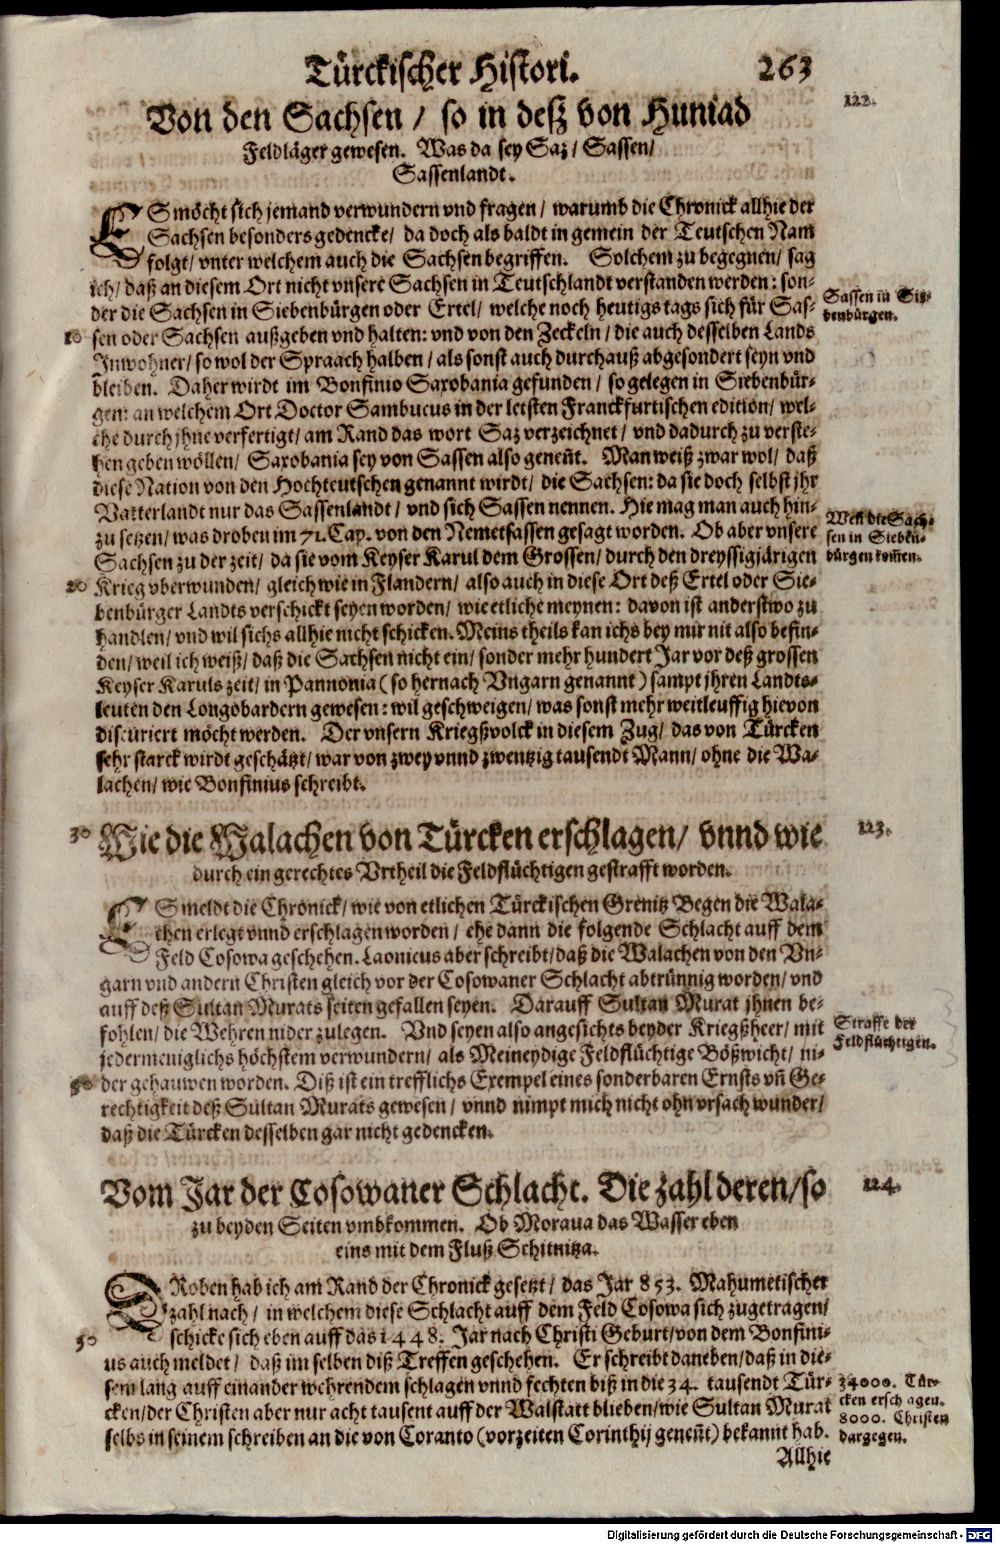 Türckischer Histori. 263
Von den Sachsen / so in deß von Huniad
122.
Feldläger gewesen. Was da sey Saz / Sassen /
Sassenlandt.
ES möcht sich jemand verwundern vnd fragen / warumb die Chronick allhie der
Sachsen besonders gedencke / da doch als baldt in gemein der Teutschen Nam
folgt / vnter welchem auch die Sachsen begriffen. Solchem zu begegnen / sag
ich / daß an diesem Ort nicht vnsere Sachsen in Teutschlandt verstanden werden: son-
der die Sachsen in Siebenbürgen oder Ertel / welche noch heutigs tags sich für Sas-
Sassen in Sie-
benbürgen.
10 sen oder Sachsen außgeben vnd halten: vnd von den Zeckeln / die auch desselben Lands
Inwohner / so wol der Spraach halben / als sonst auch durchauß abgesondert seyn vnd
bleiben. Daher wirdt im Bonfinio Saxobania gefunden / so gelegen in Siebenbür-
gen: an welchem Ort Doctor Sambucus in der letsten Franckfurtischen edition / wel-
che durch jhne verfertigt / am Rand das wort Saz verzeichnet / vnd dadurch zu verste-
hen geben wöllen / Saxobania sey von Sassen also geneñt. Man weiß zwar wol / daß
diese Nation von den Hochteutschen genannt wirdt / die Sachsen: da sie doch selbst jhr
Vatterlandt nur das Sassenlandt / vnd sich Sassen nennen. Hie mag man auch hin-
zu setzen / was droben im 71. Cap. von den Nemetsassen gesagt worden. Ob aber vnsere
Wen die Sach-
sen in Siebẽ-
bürgen kom̃en.
Sachsen zu der zeit / da sie vom Keyser Karul dem Grossen / durch den dreyssigjärigen
20 Krieg vberwunden / gleich wie in Flandern / also auch in diese Ort deß Ertel oder Sie-
benbürger Landts verschickt seyen worden / wie etliche meynen: davon ist anderstwo zu
handlen / vnd wil sichs allhie nicht schicken. Meins theils kan ichs bey mir nit also befin-
den / weil ich weiß / daß die Sachsen nicht ein / sonder mehr hundert Jar vor deß grossen
Keyser Karuls zeit / in Pannonia (so hernach Vngarn genannt) sampt jhren Landts-
leuten den Longobardern gewesen: wil geschweigen / was sonst mehr weitleuffig hievon
discuriert möcht werden. Der vnsern Kriegßvolck in diesem Zug / das von Türcken
sehr starck wirdt geschätzt / war von zwey vnnd zwentzig tausendt Mann / ohne die Wa-
lachen / wie Bonfinius schreibt.
30 Wie die Walachen von Türcken erschlagen / vnnd wie
123.
durch ein gerechtes Vrtheil die Feldflüchtigen gestrafft worden.
ES meldt die Chronick / wie von etlichen Türckischen Grenitz Begen die Wala-
chen erlegt vnnd erschlagen worden / ehe dann die folgende Schlacht auff dem
Feld Cosowa geschehen. Laonicus aber schreibt / daß die Walachen von den Vn-
garn vnd andern Christen gleich vor der Cosowaner Schlacht abtrünnig worden / vnd
auff deß Sultan Murats seiten gefallen seyen. Darauff Sultan Murat jhnen be-
fohlen / die Wehren nider zulegen. Vnd seyen also angesichts beyder Kriegßheer / mit
Straffe der
Feldflüchtigen.
jedermeniglichs höchstem verwundern / als Meineydige Feldflüchtige Bößwicht / ni-
der gehauwen worden. Diß ist ein trefflichs Exempel eines sonderbaren Ernsts vñ Ge-
rechtigkeit deß Sultan Murats gewesen / vnnd nimpt mich nicht ohn vrsach wunder /
daß die Türcken desselben gar nicht gedencken.
Vom Jar der Cosowaner Schlacht. Die zahl deren / so
124.
zu beyden Seiten vmbkommen. Ob Moraua das Wasser eben
eins mit dem Fluß Schitnitza.
DRoben hab ich am Rand der Chronick gesetzt / das Jar 853. Mahumetischer
zahl nach / in welchem diese Schlacht auff dem Feld Cosowa sich zugetragen /
50 schicke sich eben auff das 1448. Jar nach Christi Geburt / von dem Bonfini-
us auch meldet / daß im selben diß Treffen geschehen. Er schreibt daneben / daß in die-
sem lang auff einander wehrendem schlagen vnnd fechten biß in die 34. tausendt Tür-
34000. Tür-
cken erschlagen.
8000. Christen
dargegen.
cken / der Christen aber nur acht tausent auff der Walstatt blieben / wie Sultan Murat
selbs in seinem schreiben an die von Coranto (vorzeiten Corinthij geneñt) bekannt hab.
Allhie
Digitalisierung gefördert durch die Deutsche Forschungsgemeinschaft - DFG